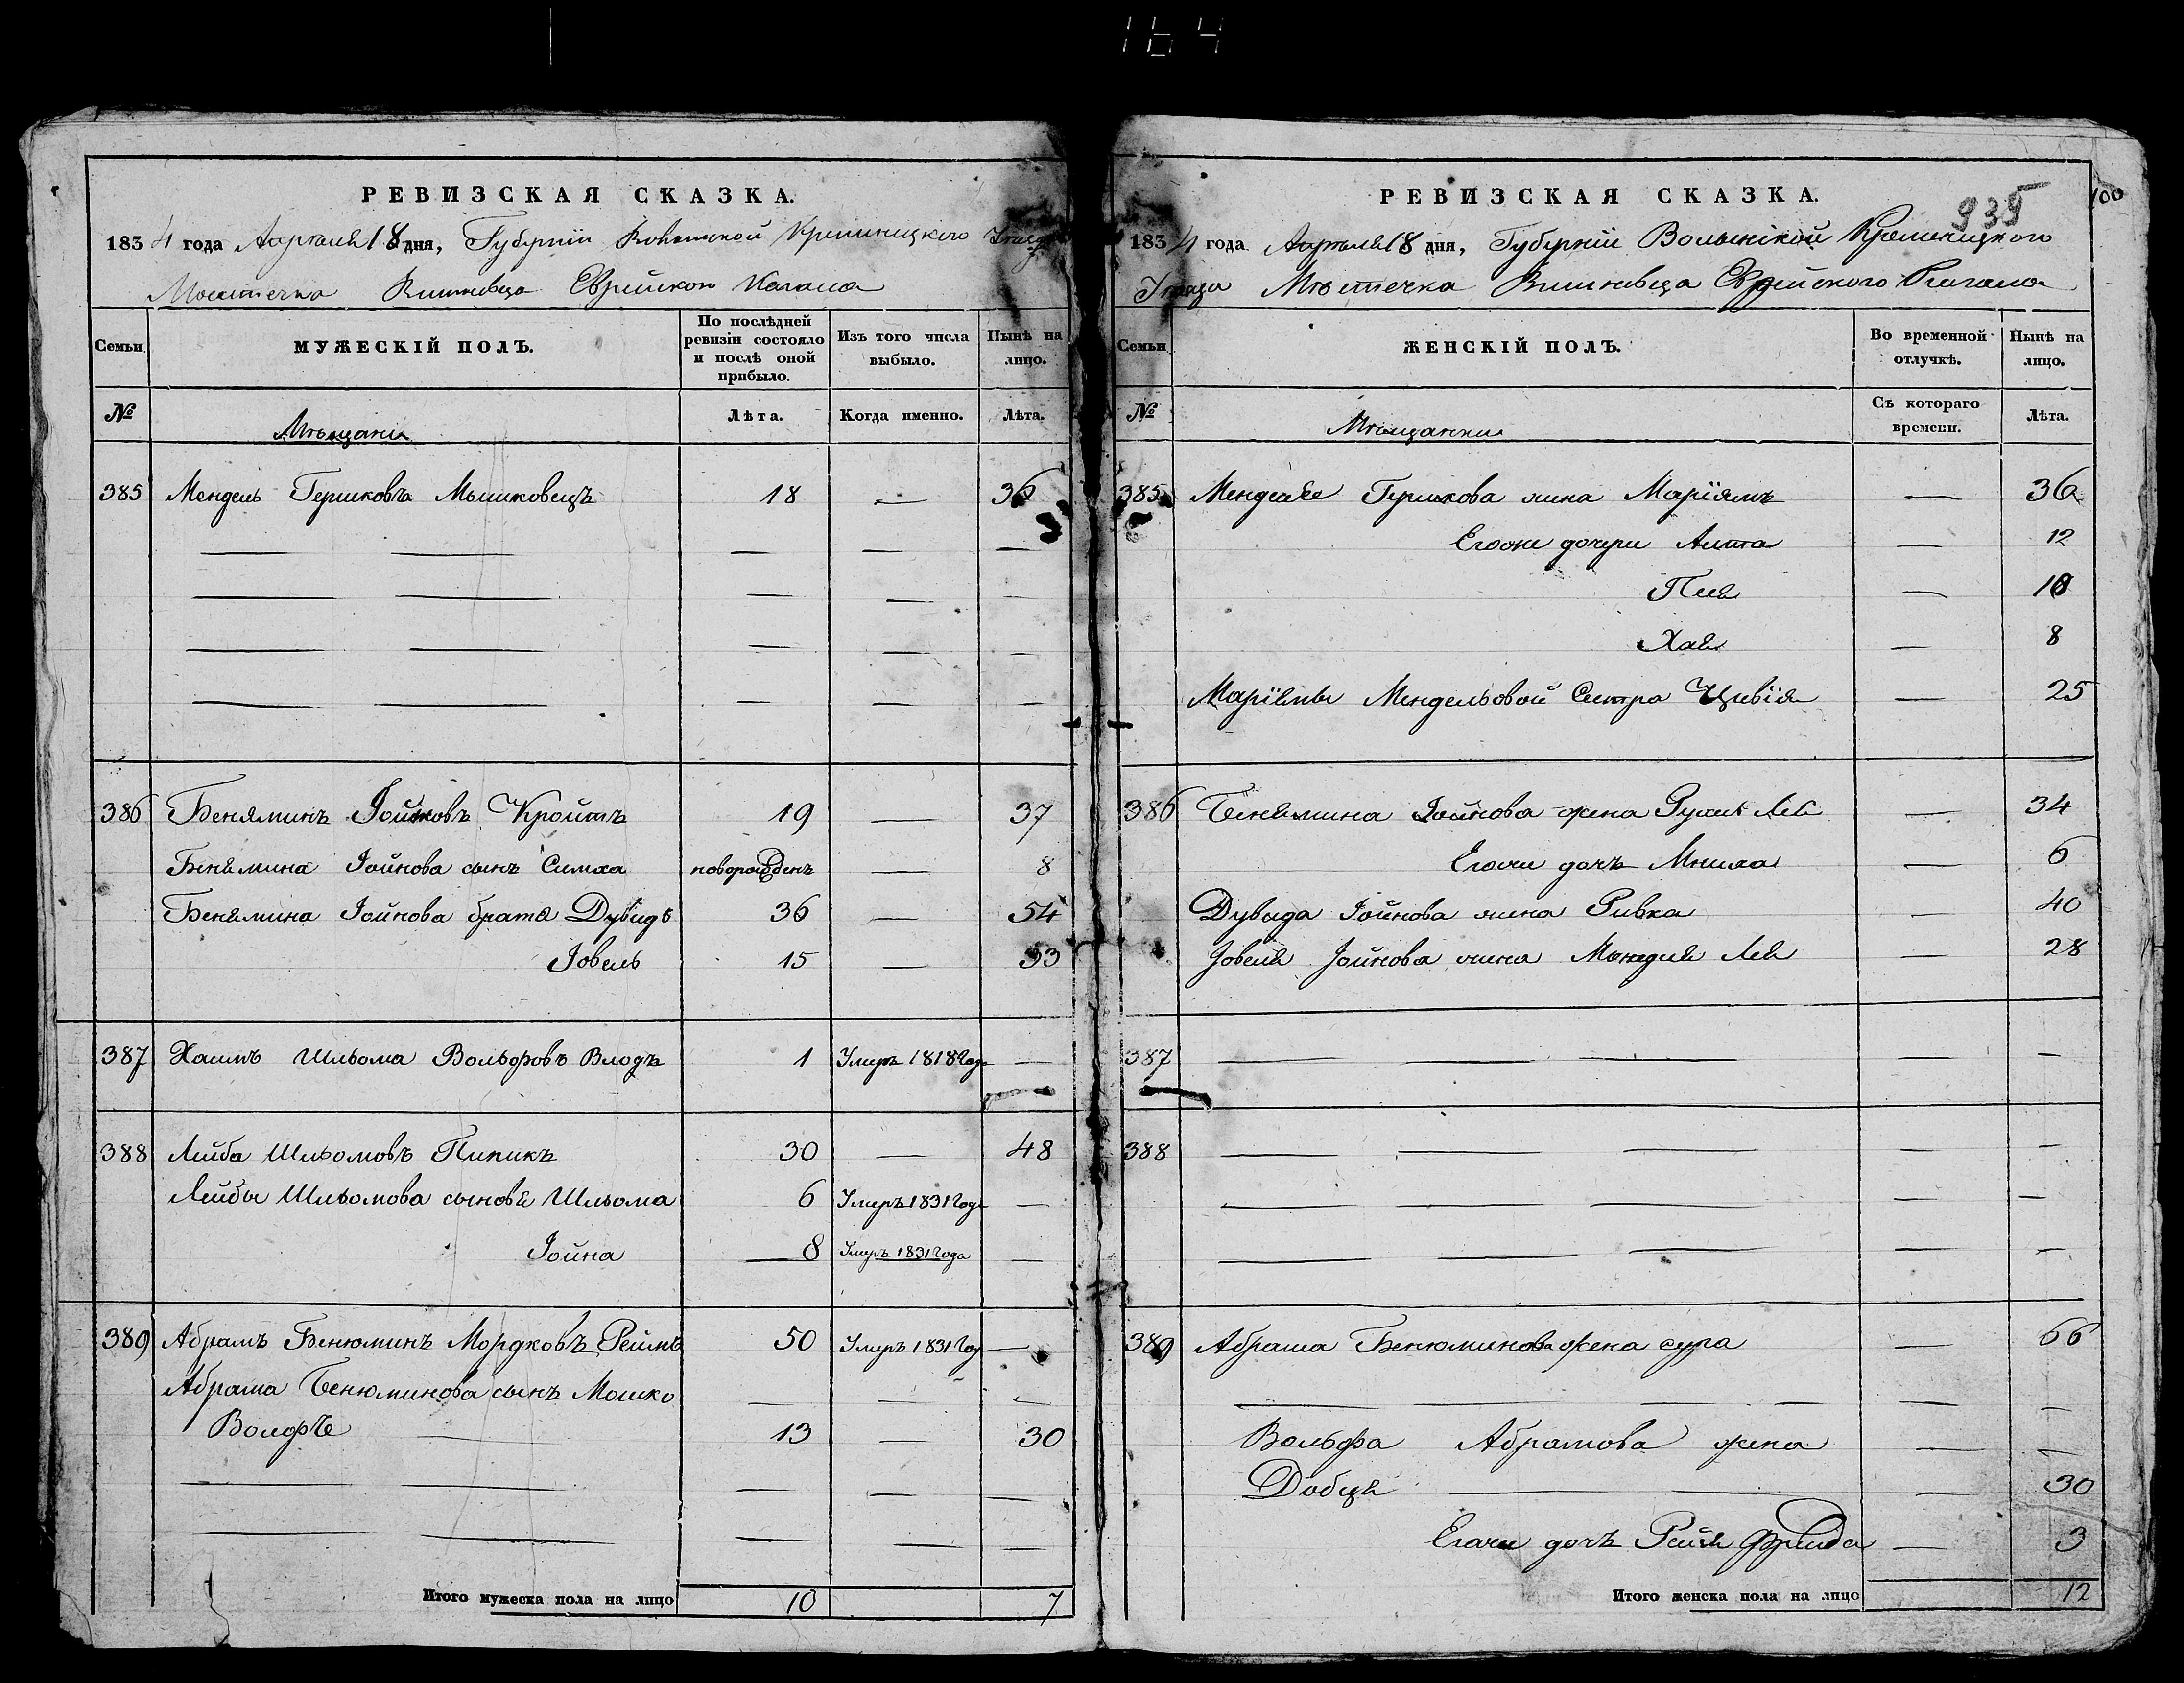 164
РЕВИЗСКАЯ СКАЗКА.
1834 года Апреля 18 дня, Губернiи Волынской Кременицкого Уезда
Местечка Вишневца Еврейского Кагала
Семьи
МУЖЕСКІЙ ПОЛЪ.
По послѣдней ревизіи состояло и послѣ оной прибыло.
Изъ того числа выбыло.
Нынѣ на лицо.
№
Мѣщане
Лѣта.
Когда именно.
Лѣта.
385 Мендель Гершковъ Мышковецъ 18 — 36
386 Бенямин Іойновъ Кройтъ 19 — 37
Бенямина Іойнова сынъ Симха новорожденъ — 8
Бенямина Іойнова братя Дувидъ 36 — 54
Іовель 15 — 33
387 Хаимъ Шльома Вольфовъ Влодъ 1 Умеръ 1818 Года —
388 Лейба Шльомовъ Пипикъ 30 — 48
Лейбы Шльомова сыновя Шльома 6 Умеръ 1831 Года —
Іойна 8 Умеръ 1831 Года —
389 Абрамъ Бенюминъ Мордковъ 50 Умеръ 1831 Год —
Абрама Бенюминова сынъ Мошко
Вольфъ 13 — 30
Итого мужеска пола на лицо 10 7
РЕВИЗСКАЯ СКАЗКА.
935
100
1834 года Апреля 18 дня, Губернiи Волынской Кременицкого
Уезда Мѣстечка Вишневца Еврейского Кагала
Семьи
ЖЕНСКІЙ ПОЛЪ.
Во временной отлучкѣ.
Нынѣ на лицо.
№
Мѣщанки
Съ котораго времени.
Лѣта.
385 Менделя Гершкова жена Маріямъ — 36
Егоже дочери Алта — 12
Песя — 10
Хая — 8
Маріямы Мендельовой Сестра Цивія — 25
386 Бенямина Іойнова жена Рухля Лея — 34
Егоже дочь — 6
Дувыда Іойнова жена Ривка — 40
Іовеля Іойнова жена Лея — 28
387
388
389 Абрама Бенюминова жена сура — 66
Вольфа Абрамова жена
Добця 30
Егоже дочь Рейзя Фрейда — 3
Итого женска пола на лицо 12